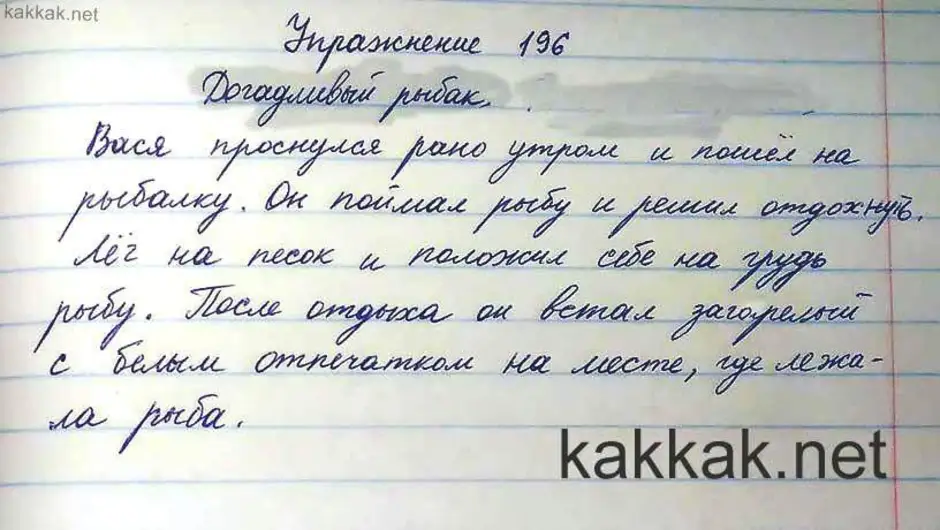 kakkak.net
Упражнение 196
Догадливый рыбак.
Вася проснулся рано утром и пошёл на
рыбалку. Он поймал рыбу и решил отдохнуть.
Лёг на песок и положил себе на грудь
рыбу. После отдыха он встал загорелый
с белым отпечатком на месте, где лежа-
ла рыба.
kakkak.net